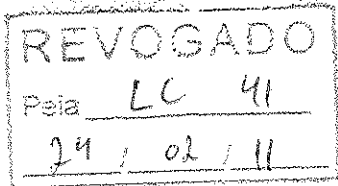 REVOGADO
Pela LC 41
24 / 02 / 11